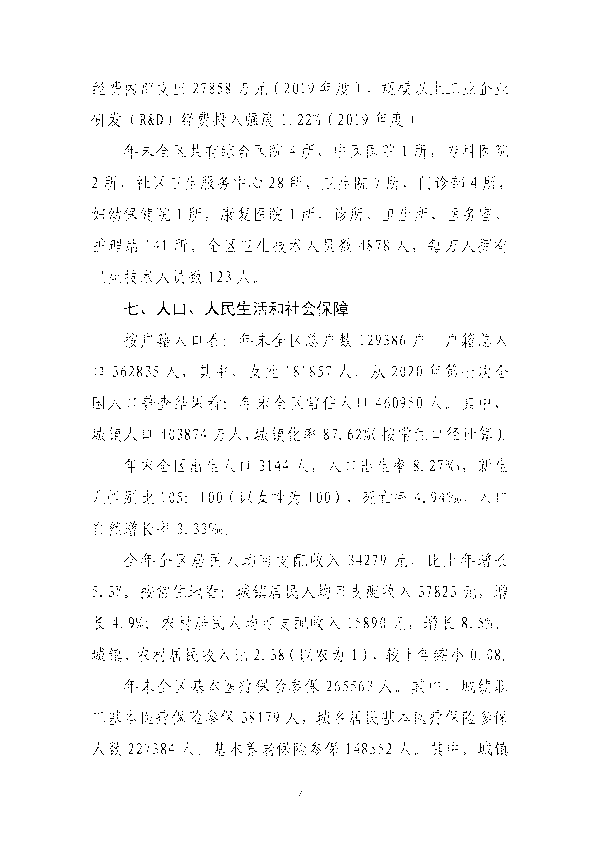 经费内部支出 27858 万元（2019 年度），规模以上工业企业
研发（R&D）经费投入强度 1.22%（2019 年度）
年末全区共有综合医院 4 所，中医医院 1 所，专科医院
2 所，社区卫生服务中心 28 所，卫生院 7 所，门诊部 4 所，
妇幼保健院 1 所，康复医院 1 所，诊所、卫生所、医务室、
护理站 141 所，全区卫生技术人员数 4878 人，每万人拥有
卫生技术人员数 123 人。
七、人口、人民生活和社会保障
按户籍人口看：年末全区总户数 129386 户，户籍总人
口 362835 人，其中，女性 181857 人。从 2020 年第七次全
国人口普查结果看：年末全区常住人口 460950 人。其中，
城镇人口 403874 万人，城镇化率 87.62%（按常住口径计算）。
年末全区出生人口 3144 人，人口出生率 8.27‰，新生
儿性别比 105：100（以女性为 100），死亡率 4.94‰，人口
自然增长率 3.33‰。
全年全区居民人均可支配收入 34279 元，比上年增长
5.5%。按常住地看：城镇居民人均可支配收入 37823 元，增
长 4.9%；农村居民人均可支配收入 15890 元，增长 8.5%。
城镇、农村居民收入比 2.38（以农为 1），较上年缩小 0.08。
年末全区基本医疗保险参保 265563 人。其中，城镇职
工基本医疗保险参保 38179 人，城乡居民基本医疗保险参保
人数 227384 人。基本养老保险参保 148552 人。其中，城镇